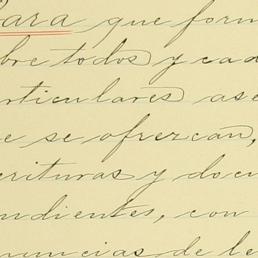 Para que form
bre todos y cad
rticulares ase
e se ofrezcan,
crituras y docu
ndientes, con
nuncias de le